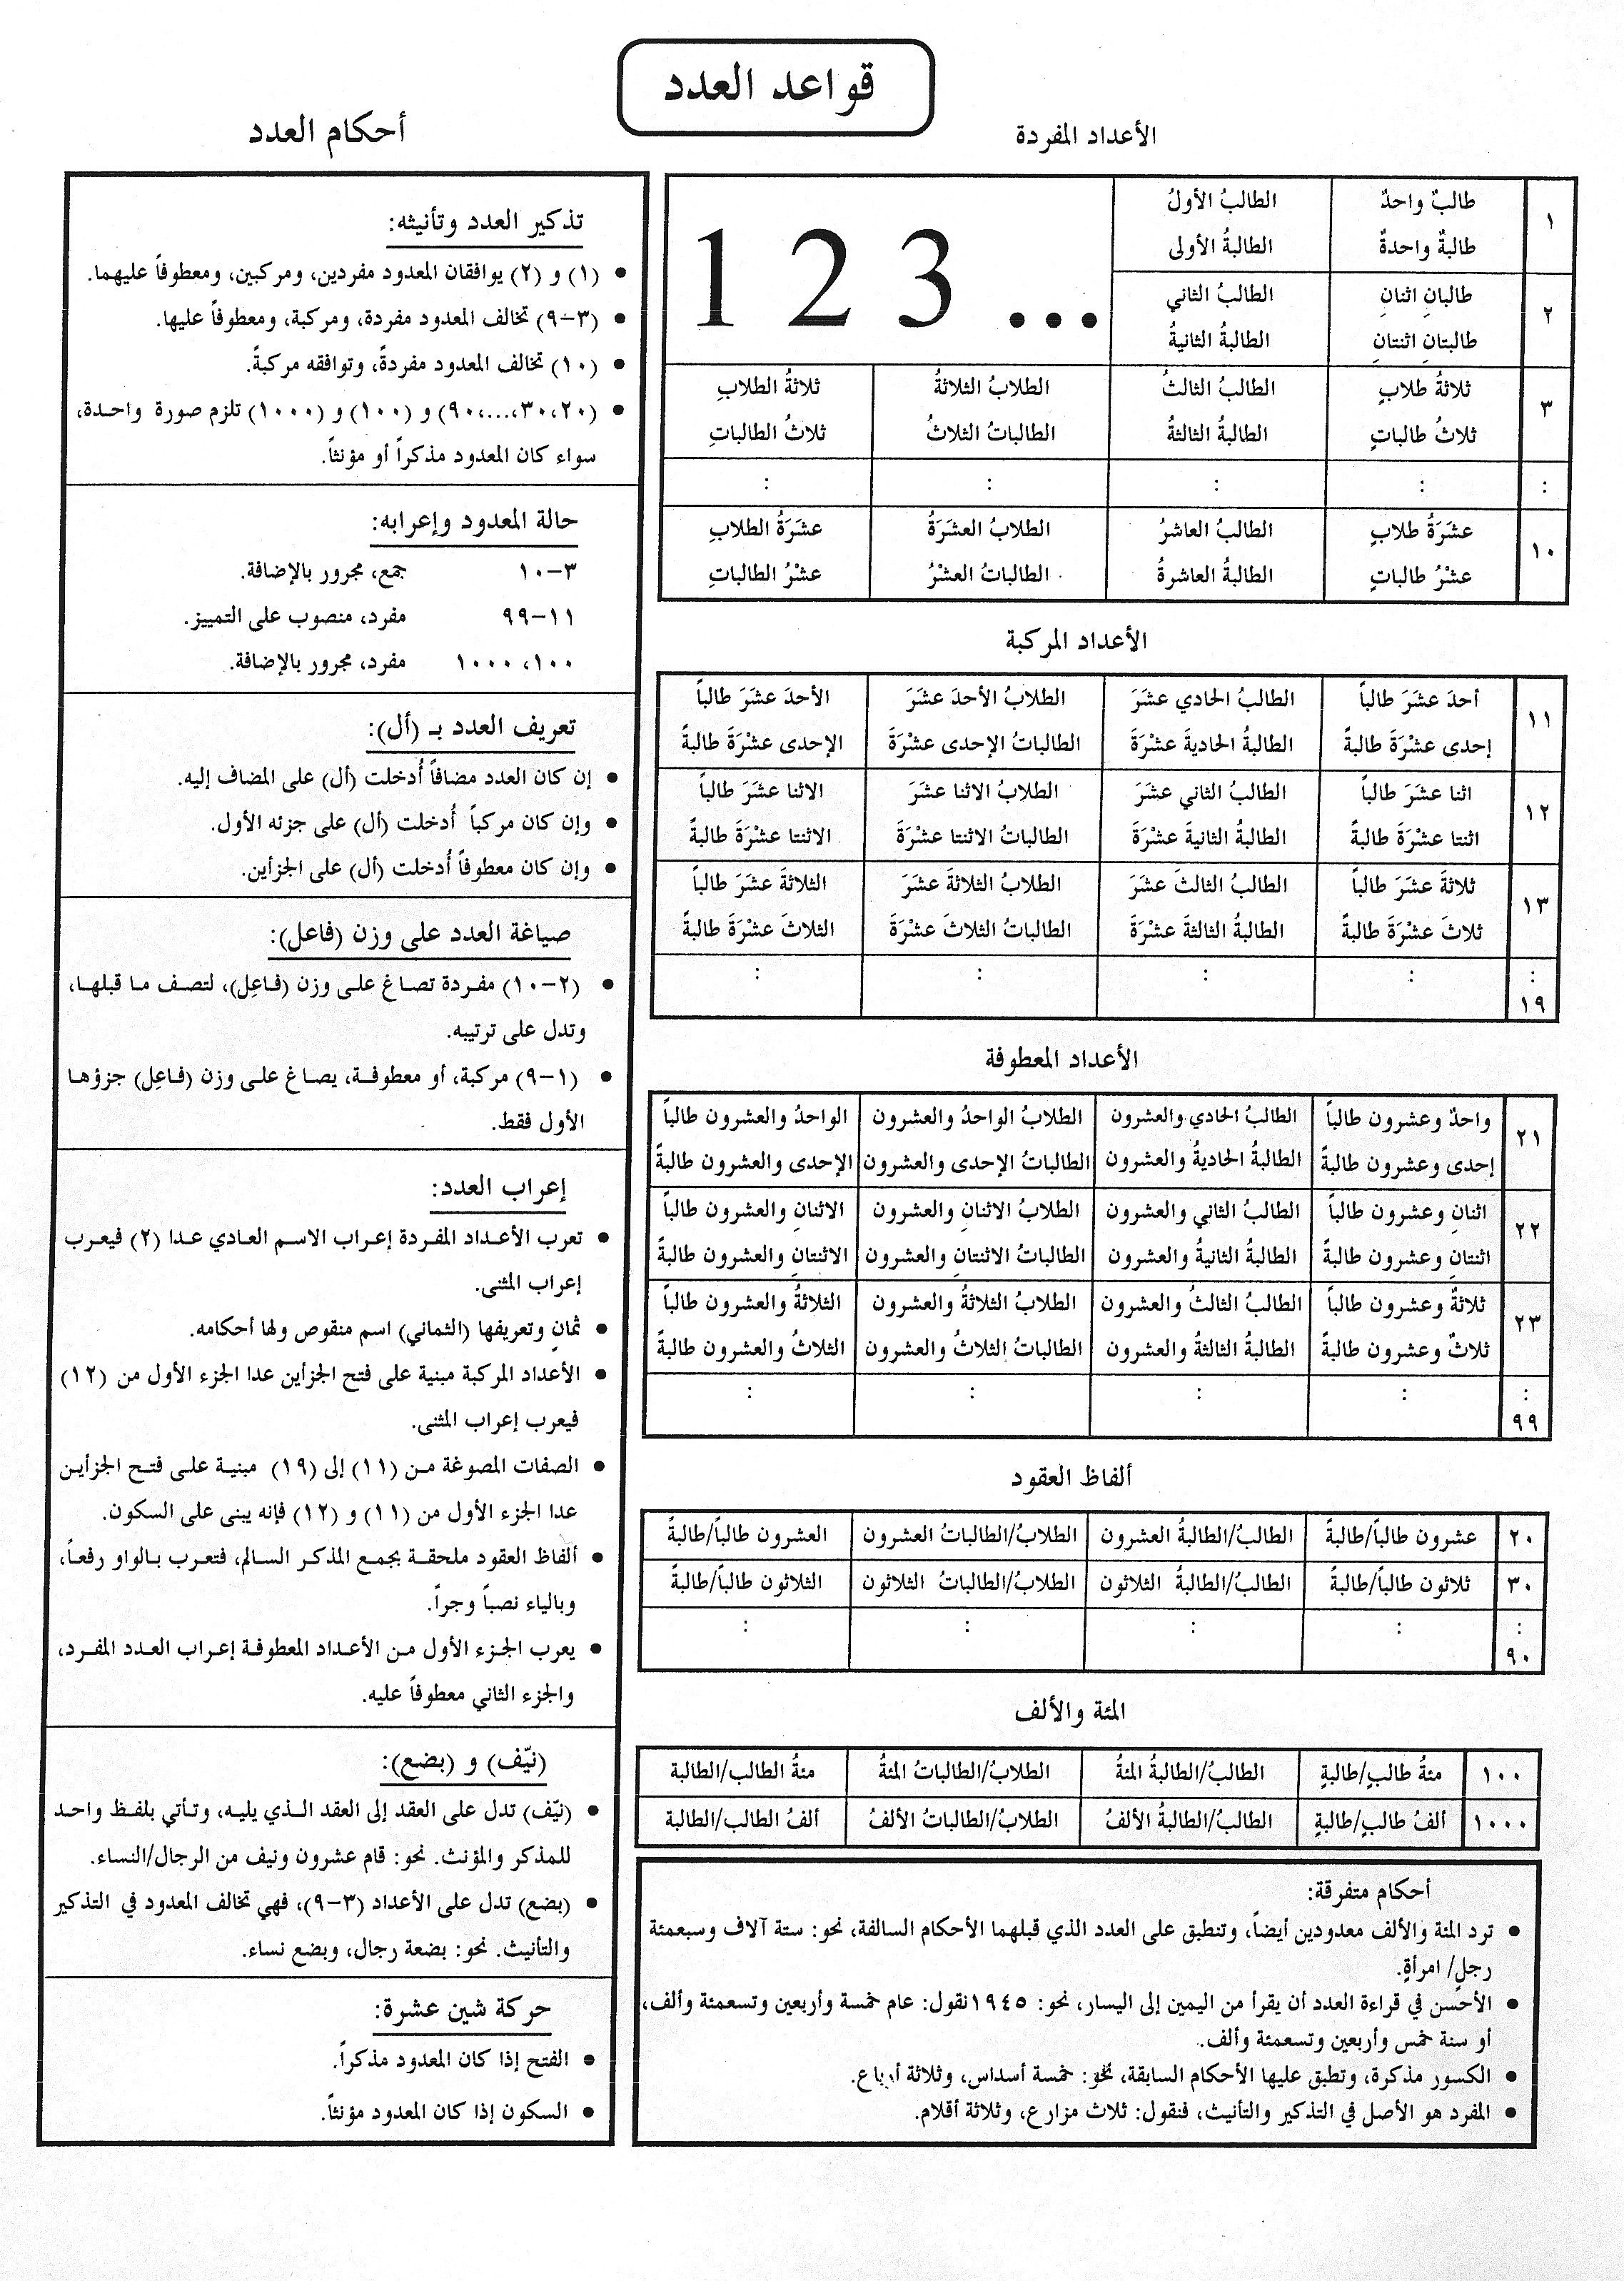 قواعد العدد
الأعداد المفردة
١
طالبٌ واحدٌ
الطالبُ الأولُ
1 2 3 ...
طالبةٌ واحدةٌ
الطالبةُ الأولى
٢
طالبانِ اثنانِ
الطالبُ الثاني
طالبتانِ اثنتانِ
الطالبةُ الثانيةُ
٣
ثلاثةُ طلابٍ
الطالبُ الثالثُ
الطلابُ الثلاثةُ
ثلاثةُ الطلابِ
ثلاثُ طالباتٍ
الطالبةُ الثالثةُ
الطالباتُ الثلاثُ
ثلاثُ الطالباتِ
:
:
:
:
:
١٠
عشَرَةُ طلابٍ
الطالبُ العاشرُ
الطلابُ العشَرَةُ
عشَرَةُ الطلابِ
عشْرُ طالباتٍ
الطالبةُ العاشرةُ
الطالباتُ العشْرُ
عشْرُ الطالباتِ
الأعداد المركبة
١١
أحدَ عشَرَ طالباً
الطالبُ الحادي عشَرَ
الطلابُ الأحدَ عشَرَ
الأحدَ عشَرَ طالباً
إحدى عشْرَةَ طالبةً
الطالبةُ الحاديةَ عشْرَةَ
الطالباتُ الإحدى عشْرَةَ
الإحدى عشْرَةَ طالبةً
١٢
اثنا عشَرَ طالباً
الطالبُ الثاني عشَرَ
الطلابُ الاثنا عشَرَ
الاثنا عشَرَ طالباً
اثنتا عشْرَةَ طالبةً
الطالبةُ الثانيةَ عشْرَةَ
الطالباتُ الاثنتا عشْرَةَ
الاثنتا عشْرَةَ طالبةً
١٣
ثلاثةَ عشَرَ طالباً
الطالبُ الثالثَ عشَرَ
الطلابُ الثلاثةَ عشَرَ
الثلاثةَ عشَرَ طالباً
ثلاثَ عشْرَةَ طالبةً
الطالبةُ الثالثةَ عشْرَةَ
الطالباتُ الثلاثَ عشْرَةَ
الثلاثَ عشْرَةَ طالبةً
:
:
:
:
:
١٩
الأعداد المعطوفة
٢١
واحدٌ وعشرون طالباً
الطالبُ الحادي والعشرون
الطلابُ الواحدُ والعشرون
الواحدُ والعشرون طالباً
إحدى وعشرون طالبةً
الطالبةُ الحاديةُ والعشرون
الطالباتُ الإحدى والعشرون
الإحدى والعشرون طالبةً
٢٢
اثنانِ وعشرون طالباً
الطالبُ الثاني والعشرون
الطلابُ الاثنانِ والعشرون
الاثنانِ والعشرون طالباً
اثنتانِ وعشرون طالبةً
الطالبةُ الثانيةُ والعشرون
الطالباتُ الاثنتانِ والعشرون
الاثنتانِ والعشرون طالبةً
٢٣
ثلاثةٌ وعشرون طالباً
الطالبُ الثالثُ والعشرون
الطلابُ الثلاثةُ والعشرون
الثلاثةُ والعشرون طالباً
ثلاثٌ وعشرون طالبةً
الطالبةُ الثالثةُ والعشرون
الطالباتُ الثلاثُ والعشرون
الثلاثُ والعشرون طالبةً
:
:
:
:
:
٩٩
ألفاظ العقود
٢٠
عشرون طالباً/طالبةً
الطالبُ/الطالبةُ العشرون
الطلابُ/الطالباتُ العشرون
العشرون طالباً/طالبةً
٣٠
ثلاثون طالباً/طالبةً
الطالبُ/الطالبةُ الثلاثون
الطلابُ/الطالباتُ الثلاثون
الثلاثون طالباً/طالبةً
:
:
:
:
:
٩٠
المئة والألف
١٠٠
مئةُ طالبٍ/طالبةٍ
الطالبُ/الطالبةُ المئةُ
الطلابُ/الطالباتُ المئةُ
مئةُ الطالب/الطالبة
١٠٠٠
ألفُ طالبٍ/طالبةٍ
الطالبُ/الطالبةُ الألفُ
الطلابُ/الطالباتُ الألفُ
ألفُ الطالب/الطالبة
أحكام متفرقة:
• ترد المئة والألف معدودين أيضاً، وتنطبق على العدد الذي قبلهما الأحكام السالفة، نحو: ستة آلاف وسبعمئة
رجلٍ/ امرأةٍ.
• الأحسن في قراءة العدد أن يقرأ من اليمين إلى اليسار، نحو: ١٩٤٥نقول: عام خمسة وأربعين وتسعمئة وألف،
أو سنة خمس وأربعين وتسعمئة وألف.
• الكسور مذكرة، وتطبق عليها الأحكام السابقة، نحو: خمسة أسداس، وثلاثة أرباع.
• المفرد هو الأصل في التذكير والتأنيث، فنقول: ثلاث مزارع، وثلاثة أقلام.
أحكام العدد
تذكير العدد وتأنيثه:
• (١) و (٢) يوافقان المعدود مفردين، ومركبين، ومعطوفاً عليهما.
• (٣-٩) تخالف المعدود مفردة، ومركبة، ومعطوفاً عليها.
• (١٠) تخالف المعدود مفردةً، وتوافقه مركبةً.
• (٢٠،٣٠،...،٩٠) و (١٠٠) و (١٠٠٠) تلزم صورة واحدة،
سواء كان المعدود مذكراً أو مؤنثاً.
حالة المعدود وإعرابه:
٣-١٠ جمع، مجرور بالإضافة.
١١-٩٩ مفرد، منصوب على التمييز.
١٠٠، ١٠٠٠ مفرد، مجرور بالإضافة.
تعريف العدد بـ (أل):
• إن كان العدد مضافاً أُدخلت (أل) على المضاف إليه.
• وإن كان مركباً أُدخلت (أل) على جزئه الأول.
• وإن كان معطوفاً أُدخلت (أل) على الجزأين.
صياغة العدد على وزن (فاعل):
• (٢-١٠) مفردة تصاغ على وزن (فاعِل)، لتصف ما قبلها،
وتدل على ترتيبه.
• (١-٩) مركبة، أو معطوفة، يصاغ على وزن (فاعِل) جزؤها
الأول فقط.
إعراب العدد:
• تعرب الأعداد المفردة إعراب الاسم العادي عدا (٢) فيعرب
إعراب المثنى.
• ثمانٍ وتعريفها (الثماني) اسم منقوص ولها أحكامه.
• الأعداد المركبة مبنية على فتح الجزأين عدا الجزء الأول من (١٢)
فيعرب إعراب المثنى.
• الصفات المصوغة من (١١) إلى (١٩) مبنية على فتح الجزأين
عدا الجزء الأول من (١١) و (١٢) فإنه يبنى على السكون.
• ألفاظ العقود ملحقة بجمع المذكر السالم، فتعرب بالواو رفعاً،
وبالياء نصباً وجراً.
• يعرب الجزء الأول من الأعداد المعطوفة إعراب العدد المفرد،
والجزء الثاني معطوفاً عليه.
(نيّف) و (بضع):
• (نيّف) تدل على العقد إلى العقد الذي يليه، وتأتي بلفظ واحد
للمذكر والمؤنث. نحو: قام عشرون ونيف من الرجال/النساء.
• (بضع) تدل على الأعداد (٣-٩)، فهي تخالف المعدود في التذكير
والتأنيث. نحو: بضعة رجال، وبضع نساء.
حركة شين عشرة:
• الفتح إذا كان المعدود مذكراً.
• السكون إذا كان المعدود مؤنثاً.